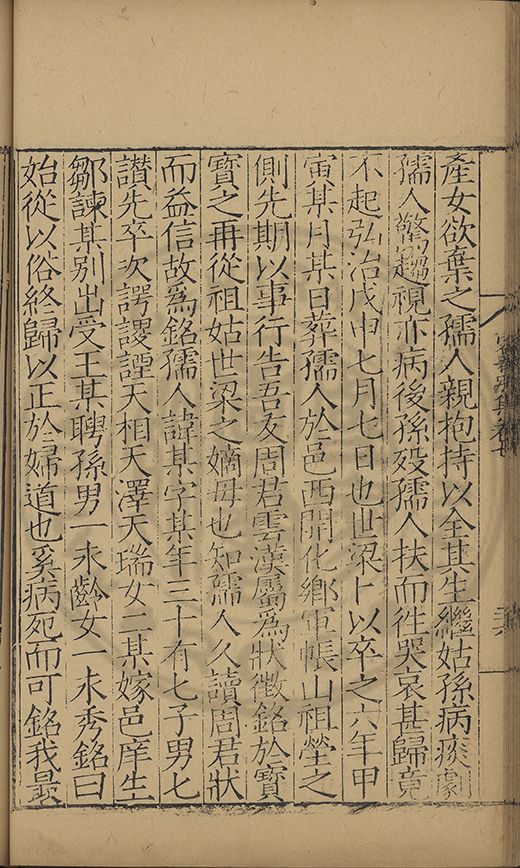 產女欲棄之孺人親抱持以全其生繼姑孫病痰劇
孺人驚趨視亦病後孫歿孺人扶而往哭哀甚歸竟
不起弘治戊申七月七日也世梁卜以卒之六年甲
寅某月某日葬孺人於邑西開化鄉軍帳山祖塋之
側先期以事行告吾友周君雲漢屬為狀徵銘於寶
寶之再從祖姑世梁之嫡母也知孺人久讀周君狀
而益信故為銘孺人諱某字某年三十有七子男七
讃先卒次諤謖諲天相天澤天瑞女二某嫁邑庠生
鄒諫某別出受王某聘孫男一永齡女一永秀銘曰
始從以俗終歸以正於婦道也奚病死而可銘我最